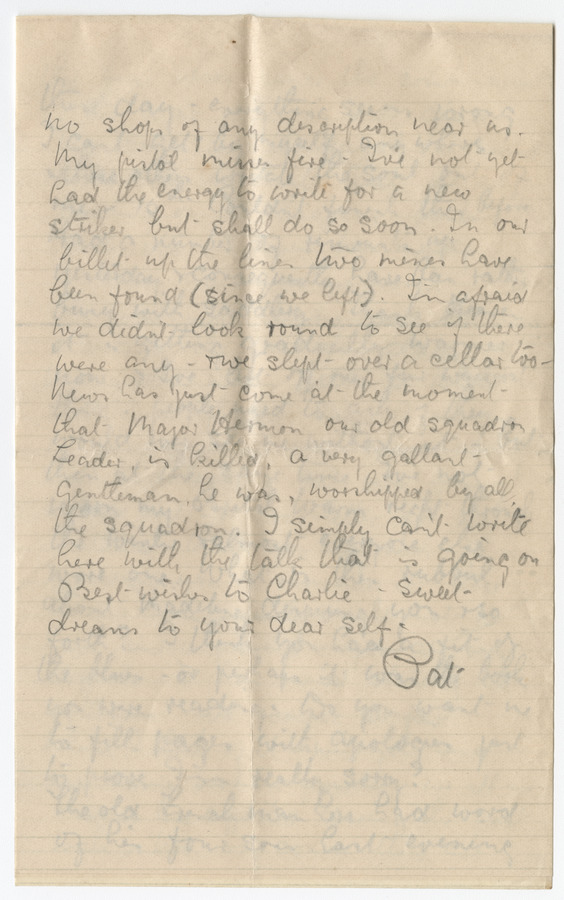 no shops of any description near us.
My pistol misses fire - I've not yet
had the energy to write for a new
striker but shall do so soon. In our
billet up the line two mines have
been found (since we left). I'm afraid
we didn't look round to see if there
were any - & we slept over a cellar too -
News has just come at the moment
that Major Hermon our old squadron
Leader, is killed, a very gallant
Gentleman, he was, worshipped by all
the squadron. I simply can't write
here with the talk that is going on
Best wishes to Charlie - Sweet
dreams to your dear self.
Pat